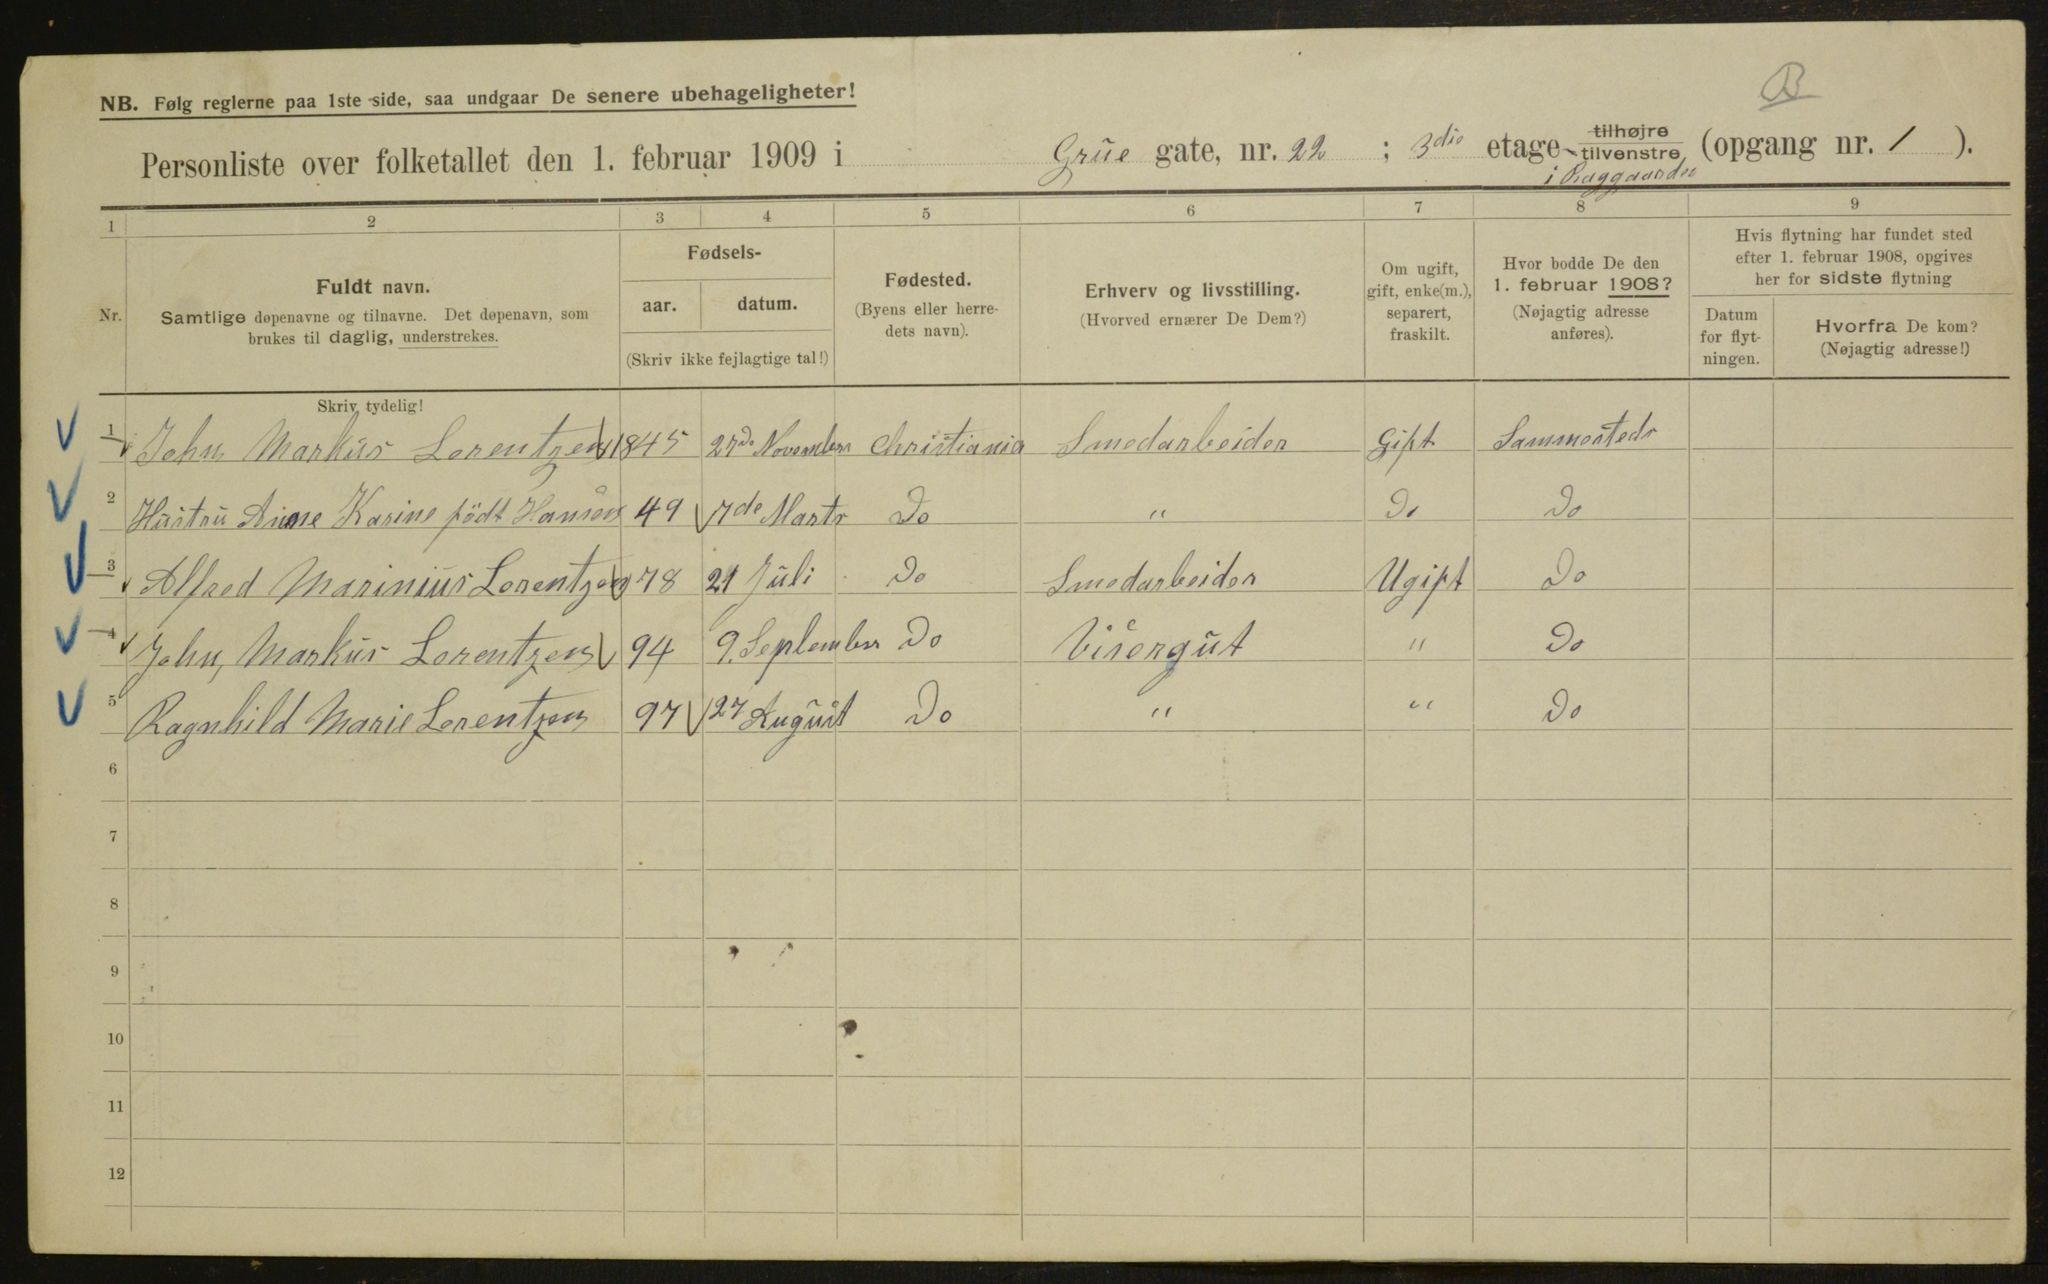 B
NB. Følg reglerne paa 1ste side, saa undgaar De senere ubehageligheter!
Personliste over folketallet den 1. februar 1909 i Grüe gate, nr. 22 ; 3die etage tilhøjre tilvenstre (opgang nr. 1 ).
i Baggaarden
1 2 3 4 5 6 7 8 9
Nr.
Fuldt navn.
Samtlige døpenavne og tilnavne. Det døpenavn, som
brukes til daglig, understrekes.
Fødsels-
aar. datum.
(Skriv ikke fejlagtige tal!)
Fødested.
(Byens eller herre-
dets navn).
Erhverv og livsstilling.
(Hvorved ernærer De Dem?)
Om ugift,
gift, enke(m.),
separert,
fraskilt.
Hvor bodde De den
1. februar 1908?
(Nøjagtig adresse
anføres).
Hvis flytning har fundet sted
efter 1. februar 1908, opgives
her for sidste flytning
Datum
for flyt-
ningen.
Hvorfra De kom?
(Nøjagtig adresse!)
Skriv tydelig!
1 John Markús Lorentzen 1845 27de November Christiania Smedarbeider Gift Sammesteds
2 Hüstrü Anne Karine födt Hansen 49 7de Marts Do " Do Do
3 Alfred Marinius Lorentzen 78 21 Juli Do Smedarbeider Ugift Do
4 John, Markús Lorentzen 94 9. September Do Visergüt " Do
5 Ragnhild Marie Lorentzen 97 27 Augúst Do " " Do
6
7
8
9
10
11
12